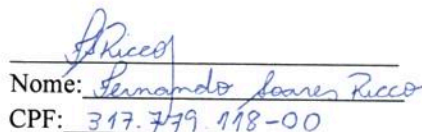 FSRicco
Nome: Fernando Soares Ricco
CPF: 317.779.118-00